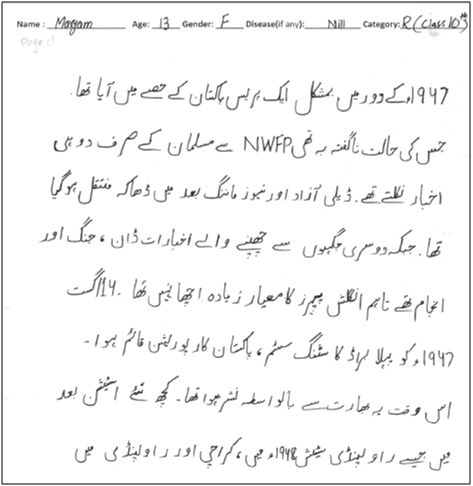 Name : Maryam Age: 13 Gender: F Disease(if any): Nill Category: R (Class 10th)
Page:1
1947ء کے دور میں بمشکل ایک پریس پاکستان کے حصے میں آیا تھا۔
جس کی حالت ناگفتہ بہ تھی NWFP سے مسلمان کے صرف دو ہی
اخبار نکلتے تھے۔ ڈیلی آزاد اور نیوز مارننگ بعد میں ڈھاکہ منتقل ہو گیا
تھا۔ جبکہ دوسری جگہوں سے چھپنے والے اخبارات ڈان، جنگ اور
انجام تھے تاہم انگلش پیپرز کا معیار زیادہ اچھا نہیں تھا۔ 14 اگست
1947ء کو پہلا براڈ کاسٹنگ سسٹم، پاکستان کارپوریشن قائم ہوا۔
اس وقت یہ بھارت سے بالواسطہ نشر ہوا تھا۔ کچھ نئے اسٹیشن بعد
میں جیسے راولپنڈی سٹیشن 1948ء میں، کراچی اور راولپنڈی میں